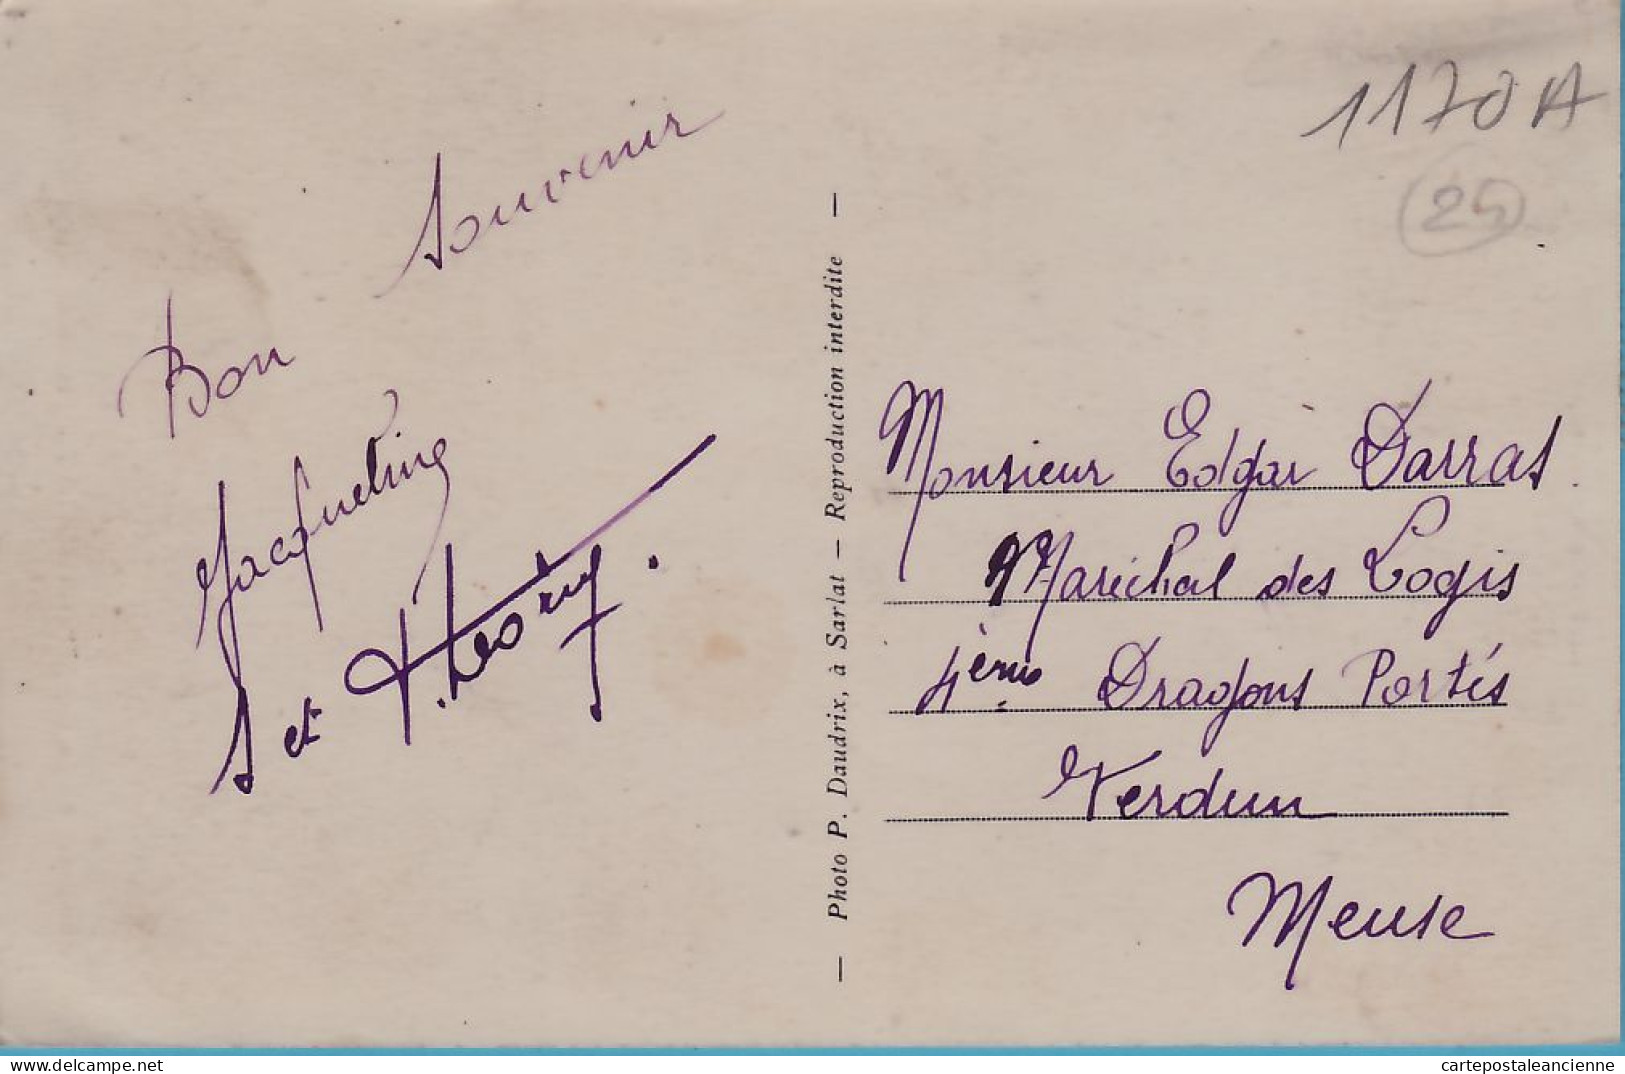 1170A
24
Bon souvenir
Jacqueline
et
— Photo P. Daudrix, à Sarlat — Reproduction interdite —
Monsieur Edgar Darras
Maréchal des Logis
4ème Dragons Portés
Verdun
Meuse
delcampe.net
cartepostaleancienne